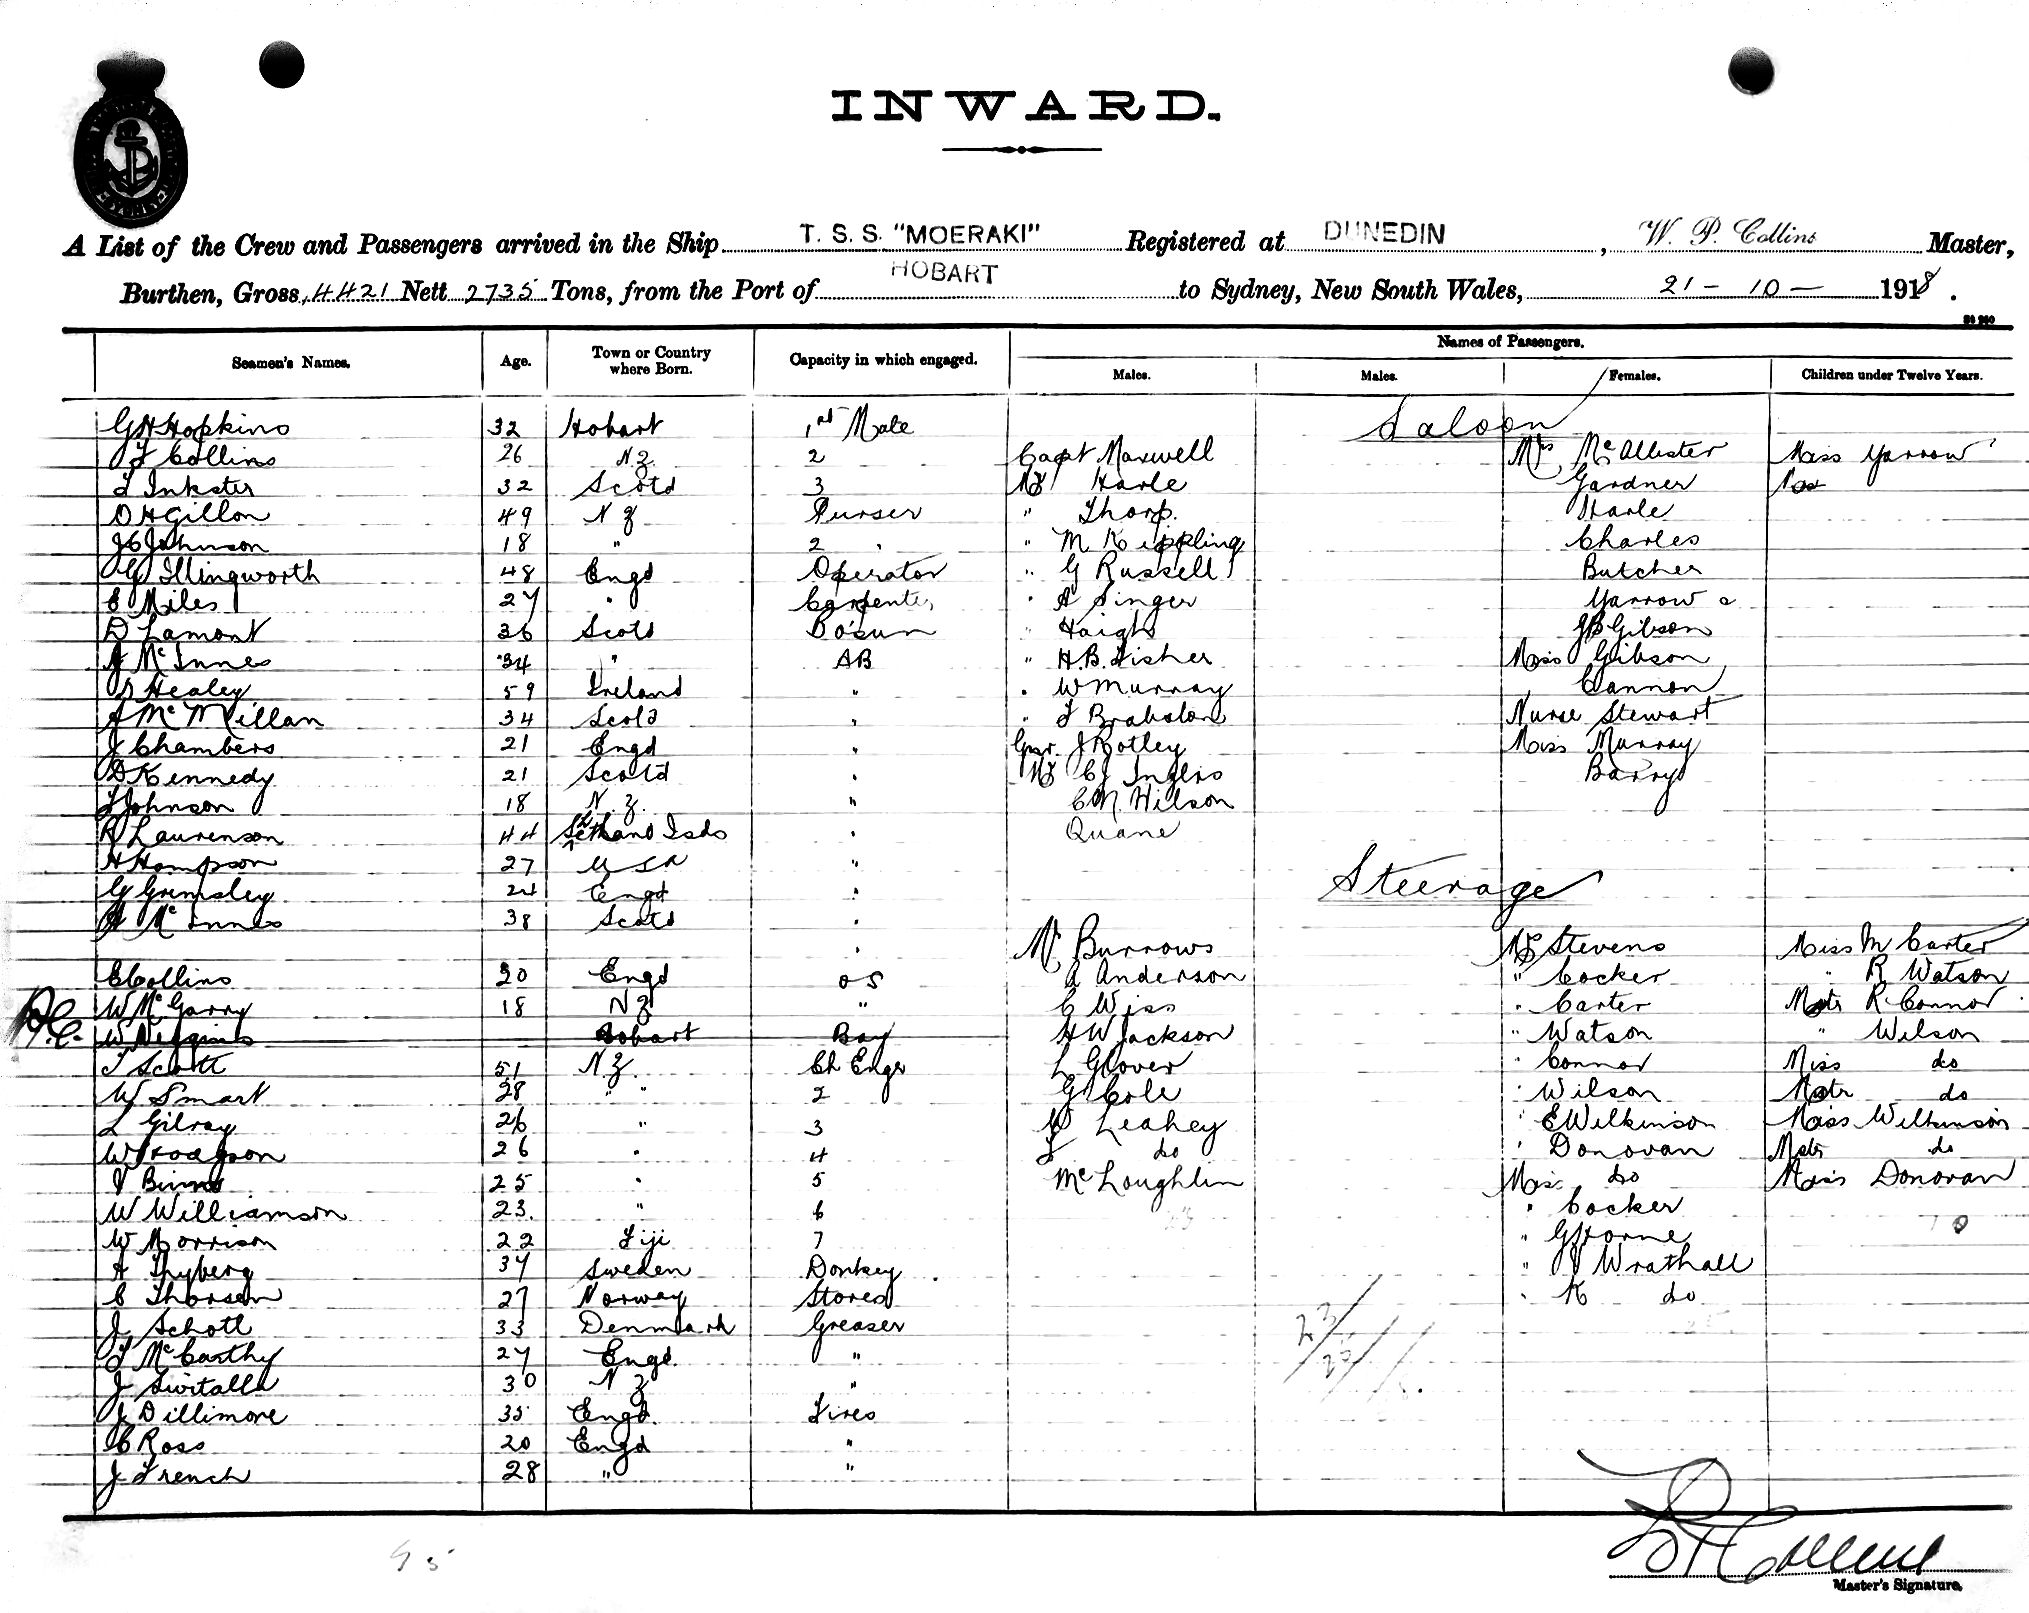 INWARD.
A List of the Crew and Passengers arrived in the Ship T. S. S. "MOERAKI" Registered at DUNEDIN, W. P. Collins Master,
Burthen, Gross, 4421 Nett 2735 Tons, from the Port of HOBART to Sydney, New South Wales, 21 - 10 - 1918.
Names of Passengers.
Seamen's Names. Age. Town or Country where Born. Capacity in which engaged. Males. Males. Females. Children under Twelve Years.
G H Hopkins 32 Hobart 1st Mate Saloon
F Collins 26 N Z 2 Capt Maxwell Mrs McAllister Miss Yarrow
Inkster 32 Scotd 3 Mr Harle Gardner
D H Gillon 49 N Z Purser " Thorp. Harle
J C Johnson 18 " 2 " " M Kippling Charles
G Illingworth 48 Engd Operator " G Russell Butcher
E Miles 27 " Carpenter " A Singer Yarrow
D Lamont 36 Scotd Bosun " Haigh J B Gibson
McInnes 34 " AB " H. B. Fisher Miss Gibson
Healey 59 Ireland " " W Murray Cannon
McMillan 34 Scotd " " F Brabston Nurse Stewart
J Chambers 21 Engd " Gnr. J Rotley Miss Murray
D Kennedy 21 Scotd " Mr C J Inglis Barry
Johnson 18 N. Z. " C N. Wilson
R Laurenson 44 Shetland Isds " Quane
H Hampson 27 U S A "
G Grimsley 24 Engd " Steerage
McInnes 38 Scotd "
" Mr Burrows Mrs Stevens Miss M Carter
E Collins 20 Engd O S A Anderson " Cocker " R Watson
W McGarry 18 N Z " C Wiss " Carter Mstr R Connor
W Hobart Boy H W Jackson " Watson " Wilson
T Scott 51 N. Z. Ch Engr L Glover " Connor Miss do
W Smart 28 " 2 G Cole " Wilson Mstr do
L Gilray 26 " 3 Leahey " E Wilkinson Miss Wilkinson
W Hodgson 26 " 4 do " Donovan Mstr do
Binns 25 " 5 McLoughlin Miss do Miss Donovan
W Williamson 23. " 6 " Cocker
W Morrison 22 Fiji 7 " G Horne
A Thyberg 37 Sweden Donkey " Wrathall
C Thorsen 27 Norway Stores " K do
J Schott 33 Denmark Greaser
McCarthy 27 Engd. "
J Switalla 30 N Z "
J Dillimore 35 Engd. Fires
C Ross 20 Engd "
J French 28 " "
Master's Signature.